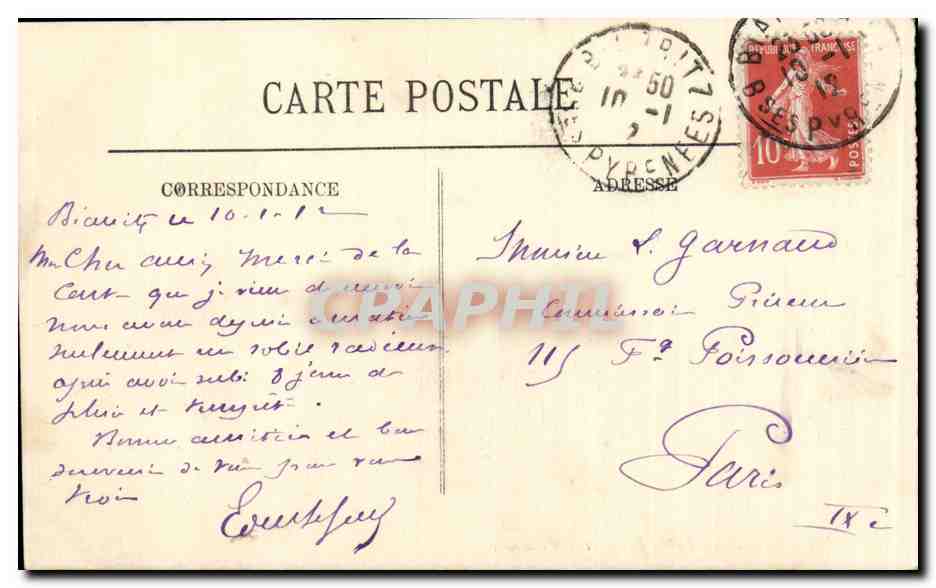 CARTE POSTALE
BIARRITZ
50
10 -1
PYRENEES
REPUBLIQUE FRANÇAISE
10
POSTES
CORRESPONDANCE
ADRESSE
Biarritz le 10.1.12
Mon Cher ami, Merci de la
Carte que je viens de recevoir
nous avons depuis ce matin
seulement un soleil radieux
après avoir subi 8 jours de
pluie et tempête.
Bonnes amitiés et bon
souvenir de nous pour vous
trois
Monsieur L. Garnaud
115 Fg Poissonnière
Paris
IXe
CRAPHIL